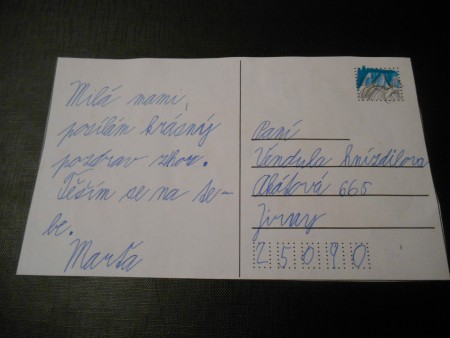 Milá mami,
posílám krásný
pozdrav zhor.
Těším se na te-
be.
Marťa
Paní
Vendula Hnízdilova
Akátová 665
Jirny
25090